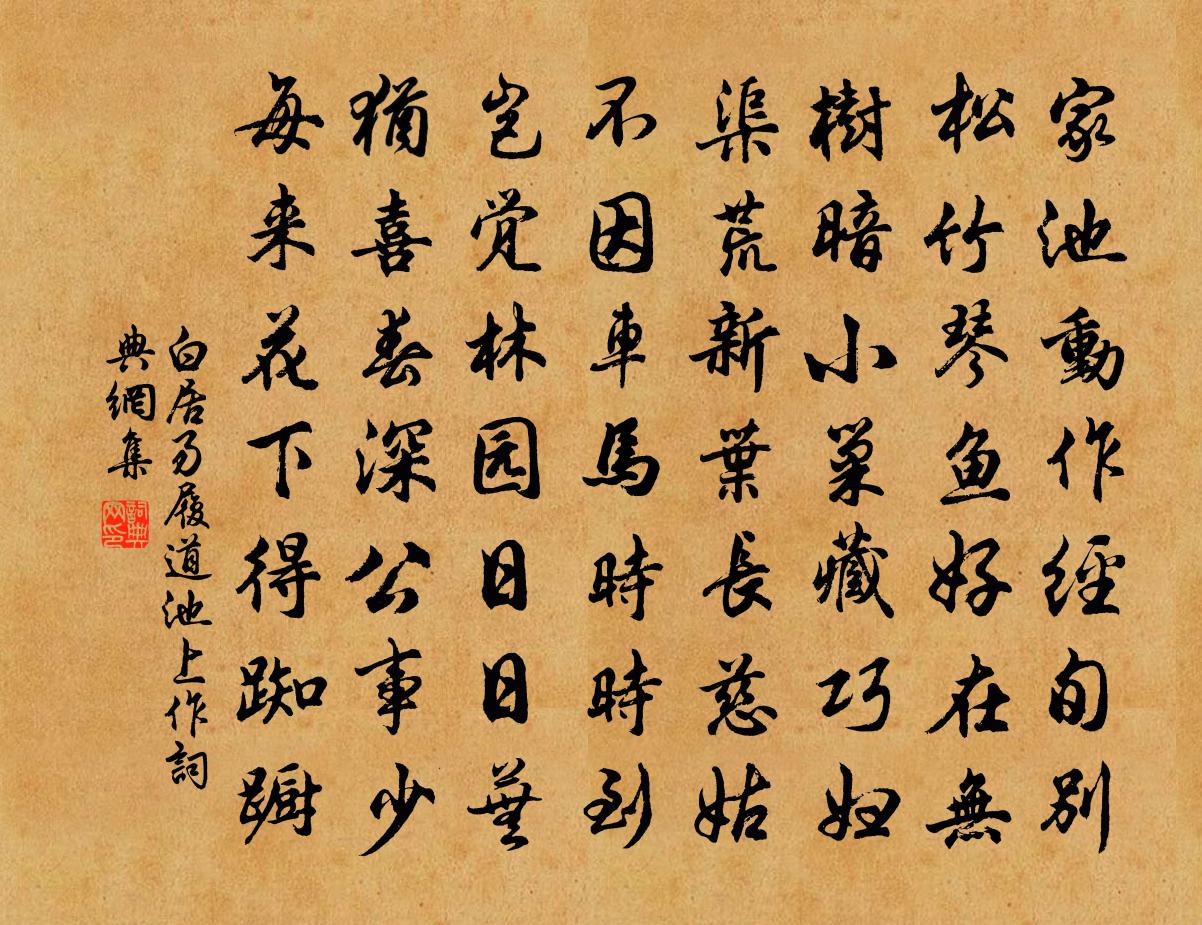 家池動作經旬別
松竹琴鱼好在無
樹暗小巢藏巧妇
渠荒新葉長慈姑
不因車馬時時到
岂觉林园日日蕪
猶喜春深公事少
每来花下得踟蹰
白居易履道池上作詞
典網集
詞典
网印